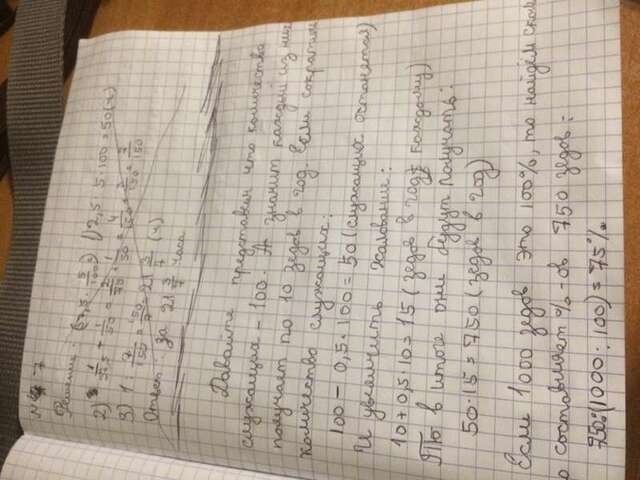 № 7
Решение: (37,5 · 5/100) 1) 2,5 · 5 · 100 = 50 (ч)
2) 1/37,5 + 1/50 = 2/75 + 1/50 = 4/150 + 3/150 = 7/150
3) 1 : 7/150 = 150/7 = 21 3/7 (ч)
Ответ: за 21 3/7 часа
Давайте представим что количество
служащих - 100. А значит каждый из них
получает по 10 зедов в год. Если сократим
количество служащих:
100 - 0,5 · 100 = 50 (служащих останется)
И увеличить жалование:
10 + 0,5 · 10 = 15 (зедов в год каждому)
То в итоге они будут получать:
50 · 15 = 750 (зедов в год)
Если 1000 зедов это 100%, то найдём
составляет %-ов 750 зедов:
750 : (1000 : 100) = 75%